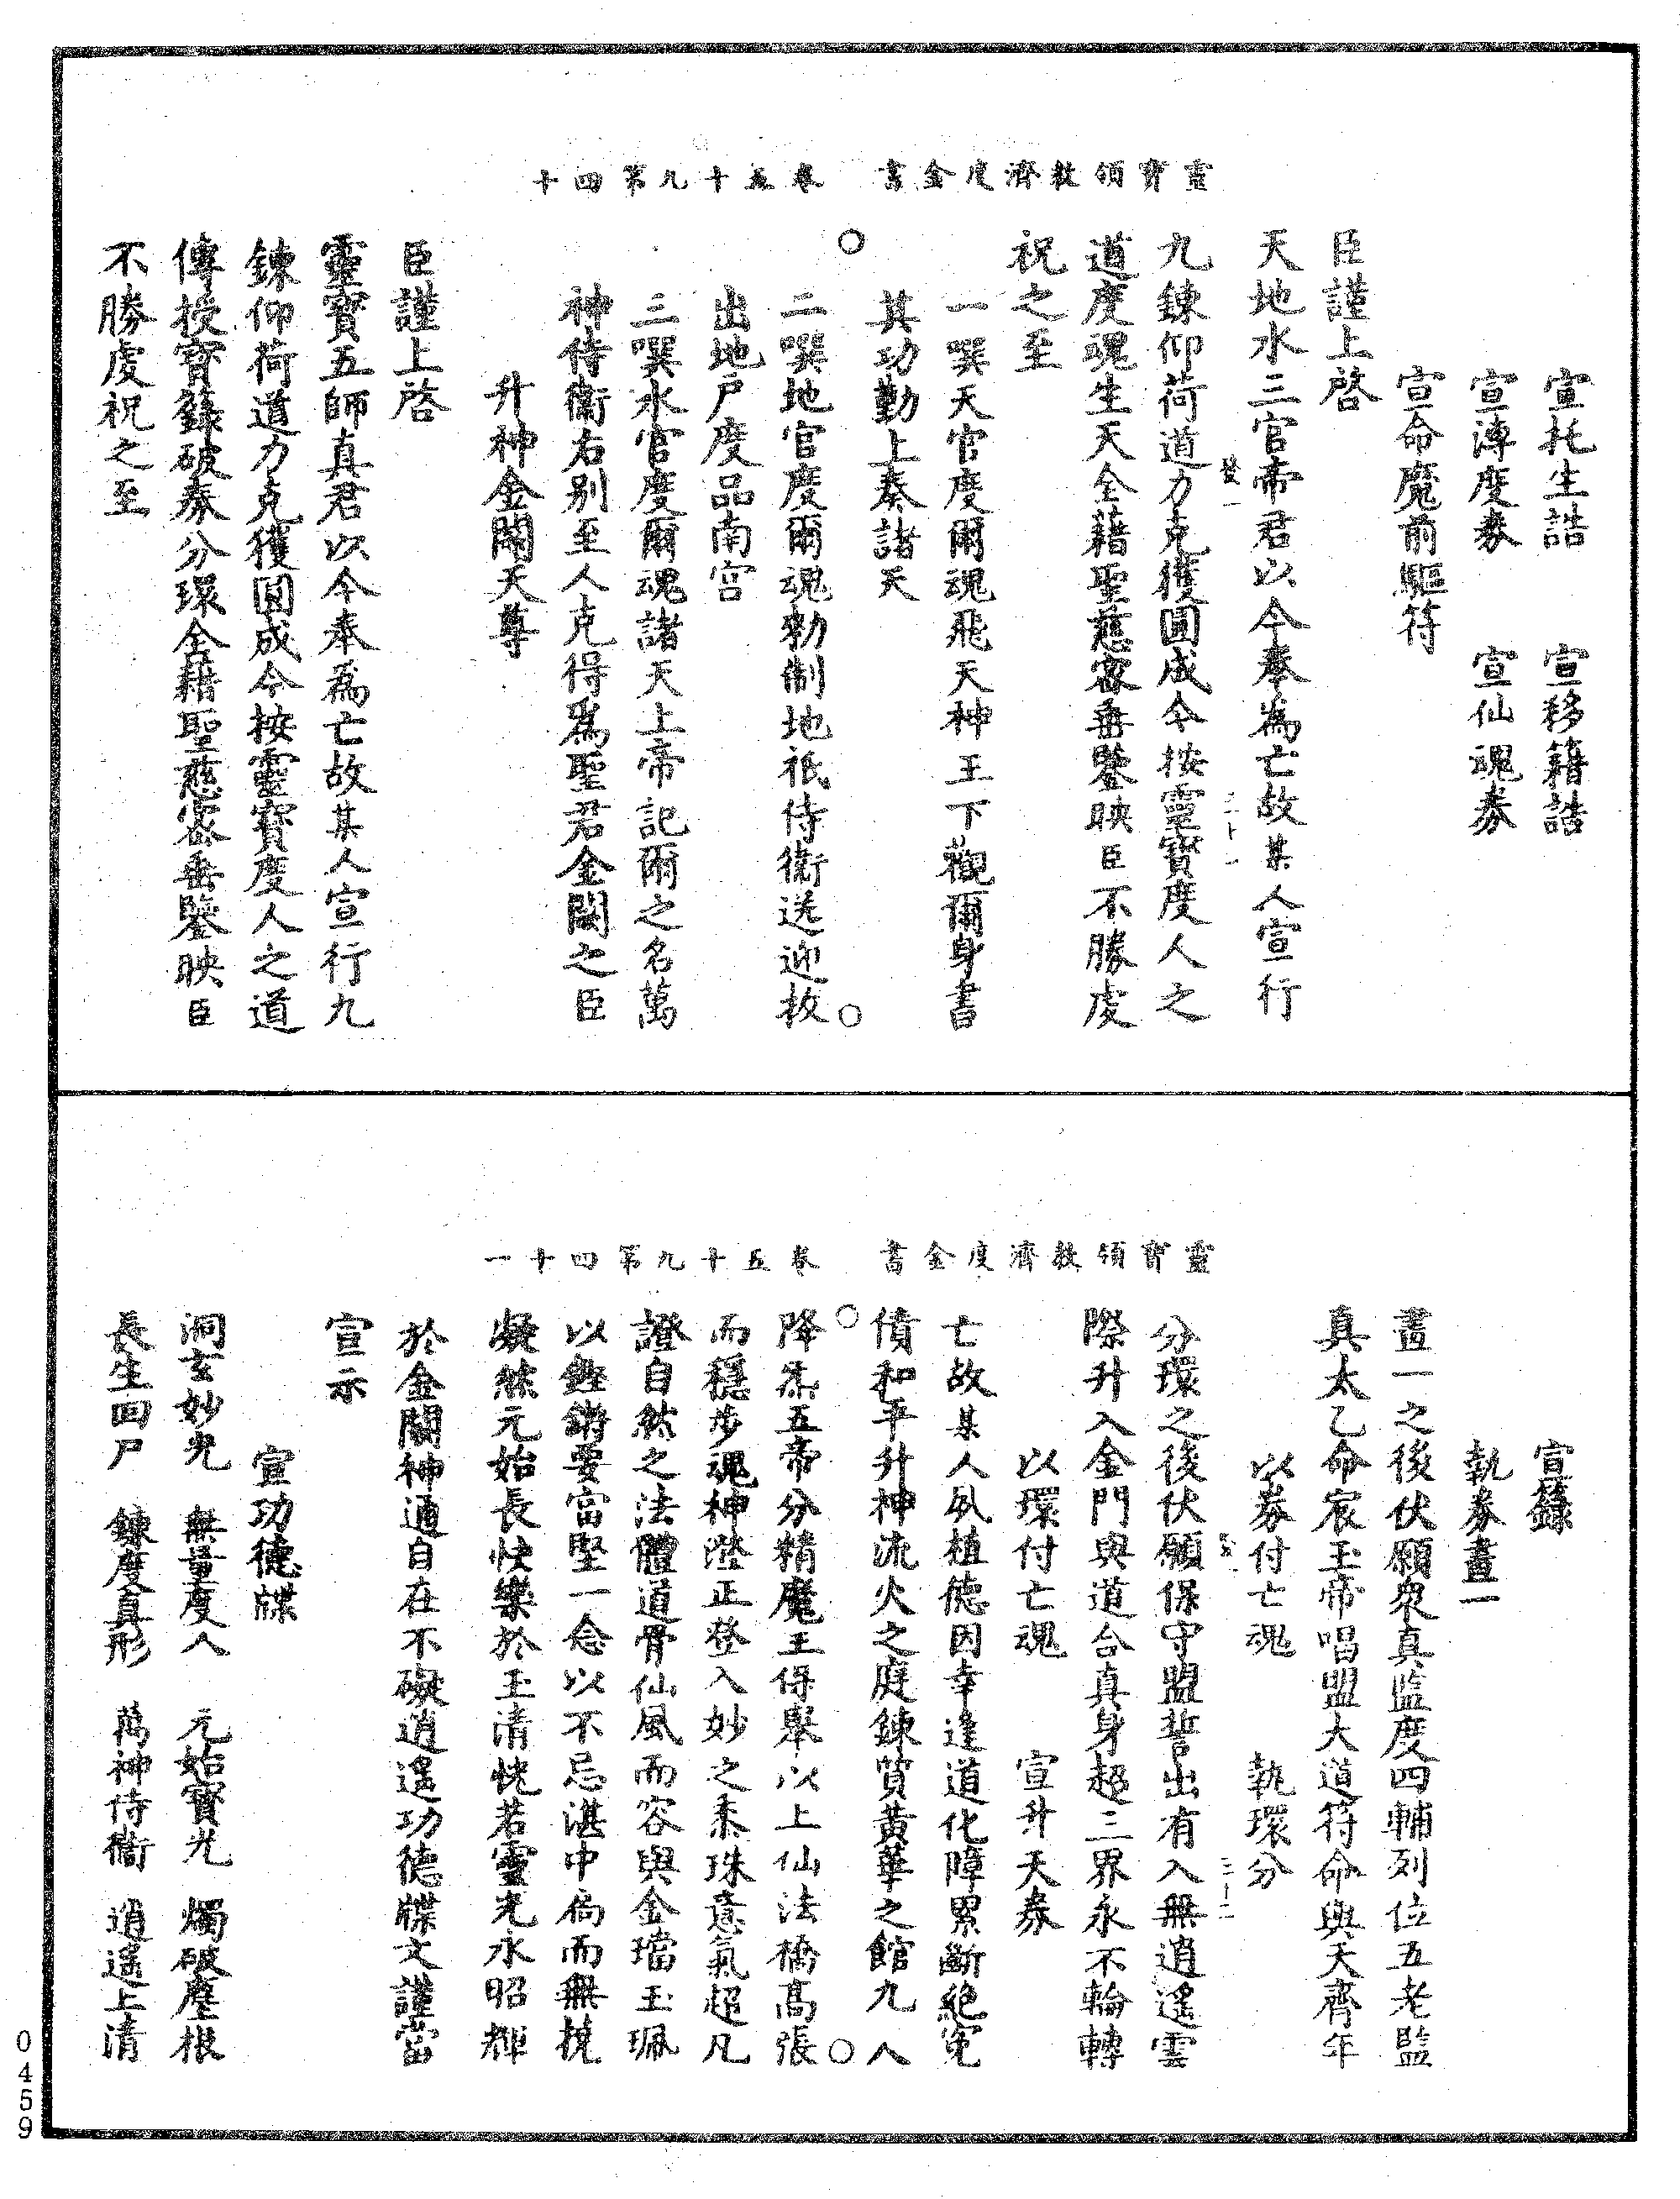 靈寶領教濟度金書　卷五十九第四十
宣托生誥　宣移籍誥
宣溥度券　宣仙魂券
宣命魔前驅符
臣謹上啓
天地水三官帝君以今奉為亡故某人宣行
九鍊仰荷道力克獲圓成今按靈寶度人之
道度魂生天全藉聖慈密垂鑒映臣不勝虔
祝之至
一噀天官度爾魂飛天神王下觀爾身書
其功勤上奏諸天
二噀地官度爾魂勑制地祇侍衛送迎拔
出地戶度品南宮
三噀水官度爾魂諸天上帝記爾之名萬
神侍衛右别至人克得爲聖君金闕之臣
升神金闕天尊
臣謹上啓
靈寶五師真君以今奉為亡故某人宣行九
鍊仰荷道力克獲圓成今按靈寶度人之道
傳授寶籙破券分環全藉聖慈密垂鑒映臣
不勝虔祝之至
靈寶領教濟度金書　卷五十九第四十一
宣籙
執券畫一
畫一之後伏願衆真監度四輔列位五老監
真太乙命宸玉帝唱盟大道符命與天齊年
以券付亡魂　執環分
分環之後伏願保守盟誓出有入無逍遙雲
際升入金門與道合真身超三界永不輪轉
以環付亡魂　宣升天券
亡故某人夙植德因幸逢道化障累斷絶寃
債和平升神流火之庭鍊質黃華之館九人
降炁五帝分精魔王保舉以上仙法橋高張
而穩步魂神澄正登入妙之黍珠意氣超凡
證自然之法體道骨仙風而容與金璫玉珮
以鏗鏘要當堅一念以不忘湛中扃而無撓
凝然元始長快樂於玉清恍若靈光永昭輝
於金闕神通自在不礙逍遙功德牒文謹當
宣示
宣功德牒
洞玄妙光　無量度人　元始寶光　燭破塵根
長生回尸　鍊度真形　萬神侍衛　逍遙上清
0459